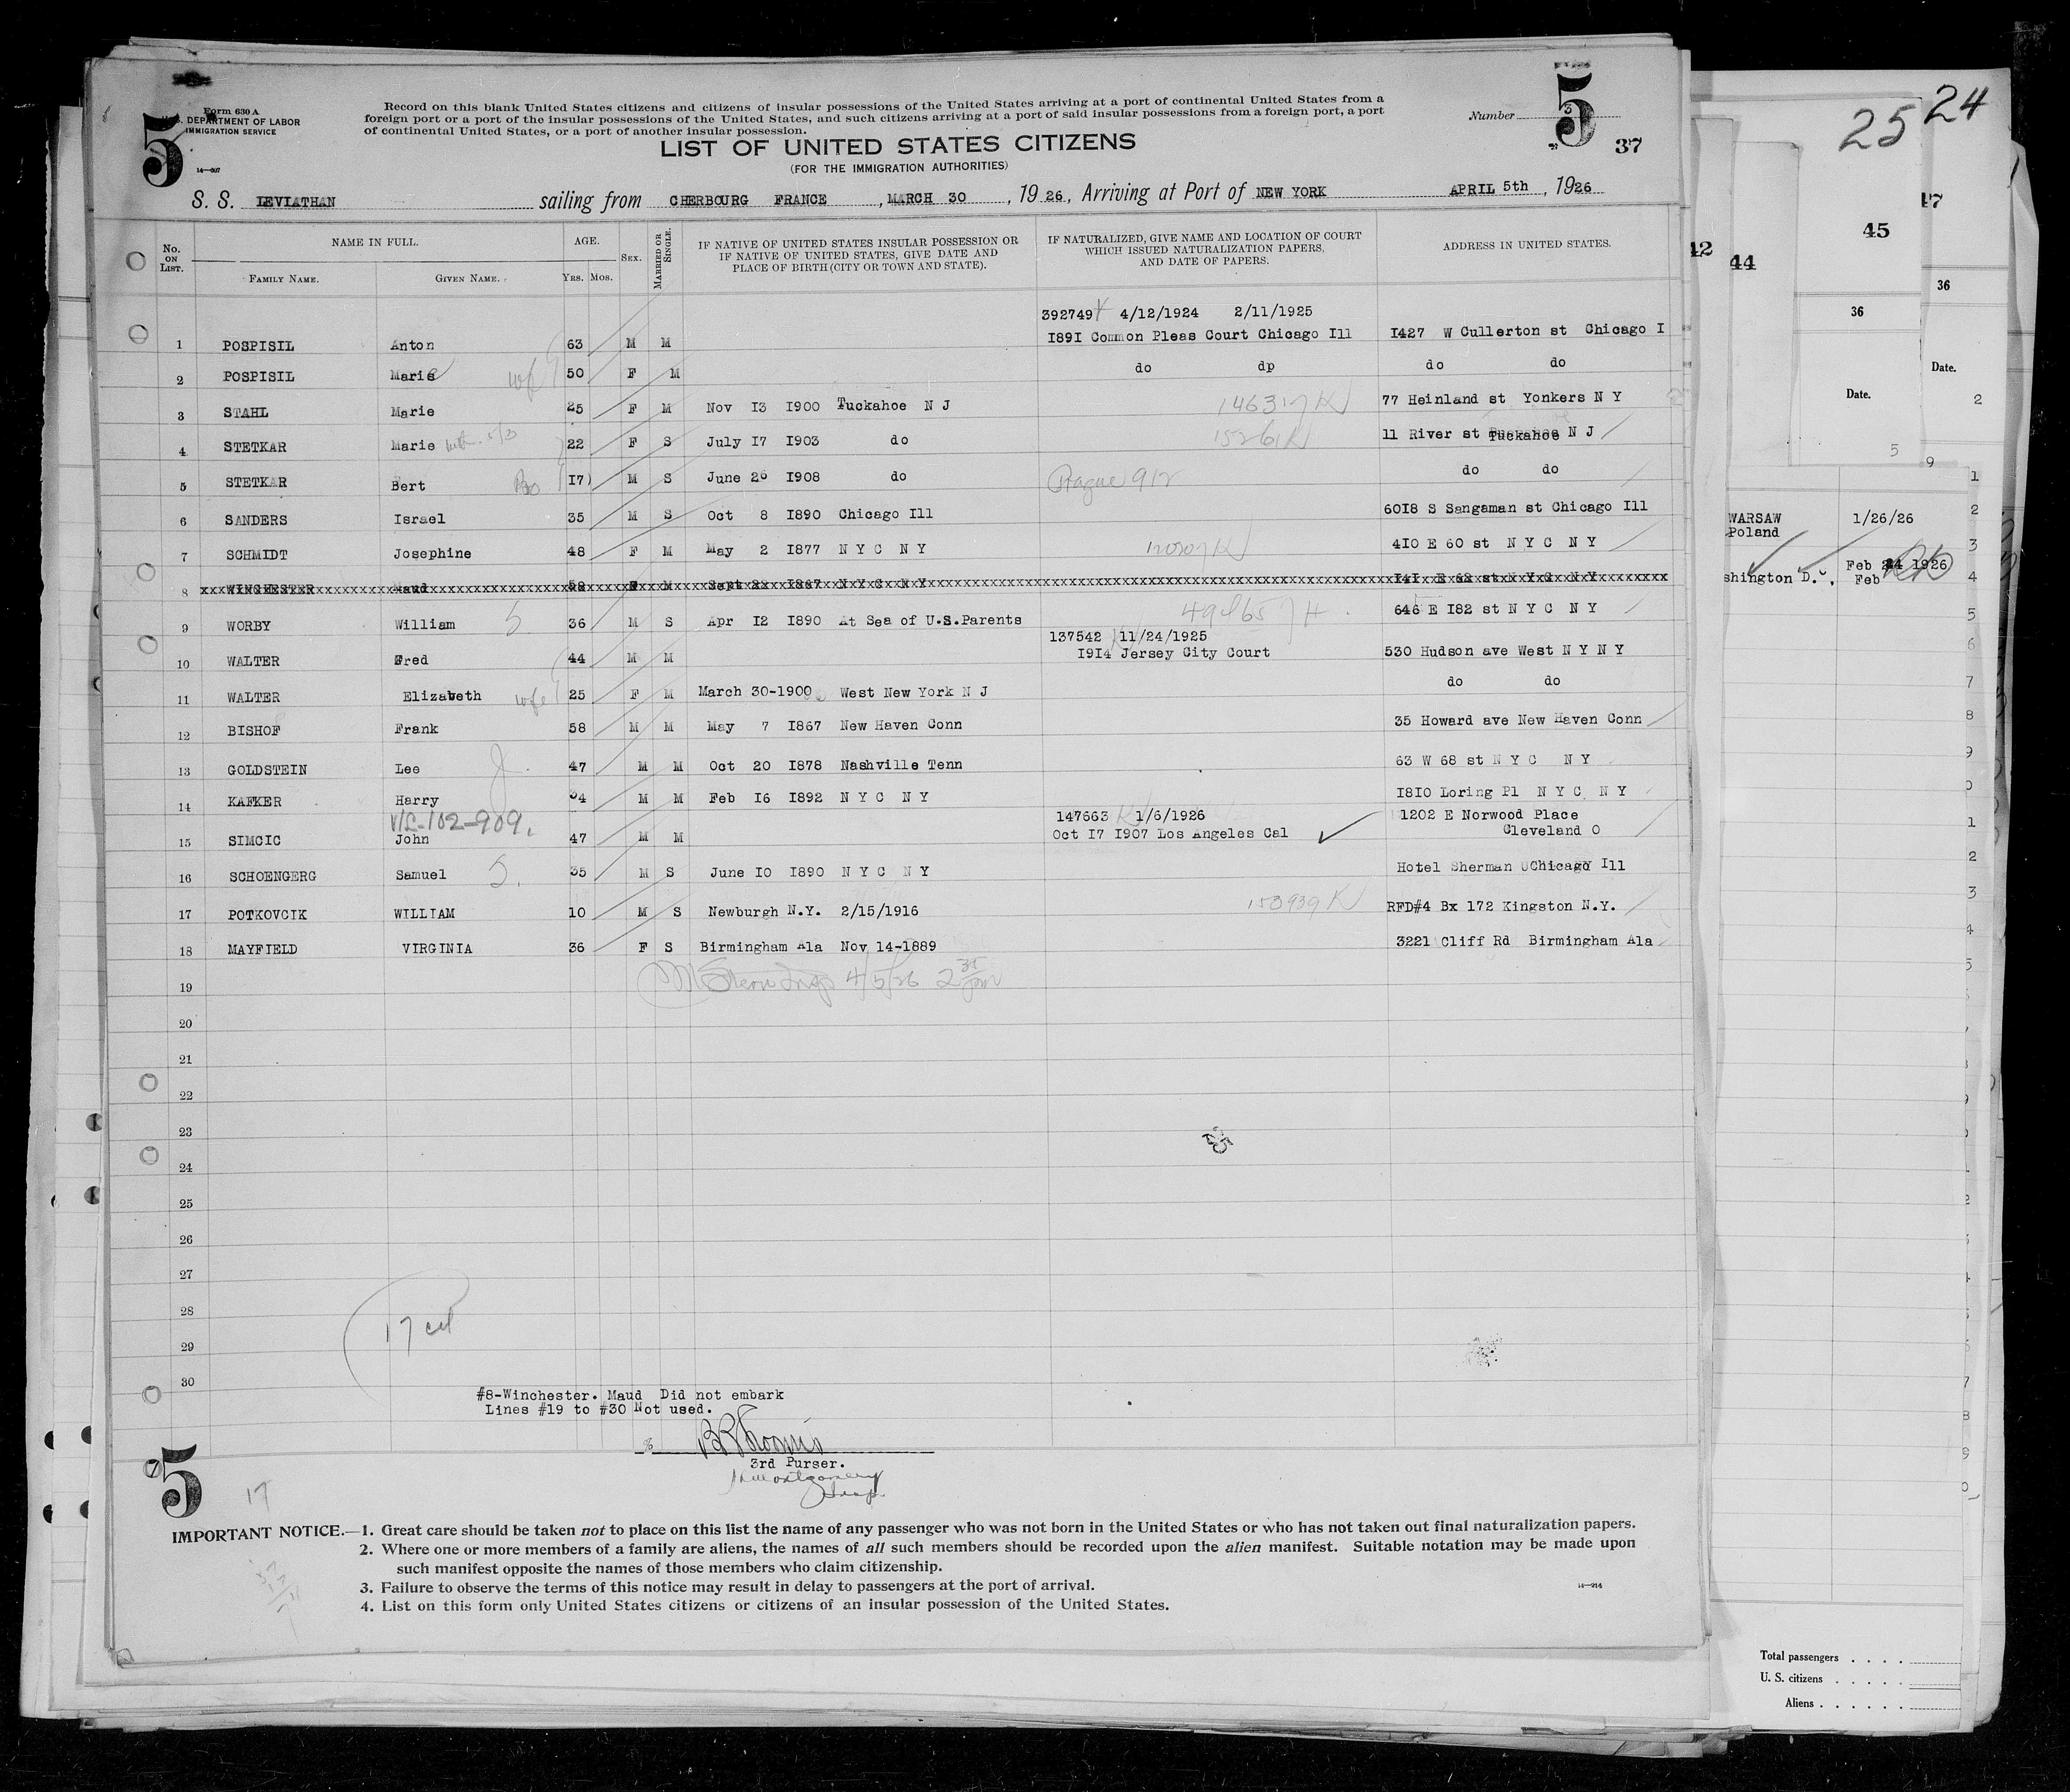 5
Form 630 A
U.S. DEPARTMENT OF LABOR
IMMIGRATION SERVICE
14—207
Record on this blank United States citizens and citizens of insular possessions of the United States arriving at a port of continental United States from a
foreign port or a port of the insular possessions of the United States, and such citizens arriving at a port of said insular possessions from a foreign port, a port
of continental United States, or a port of another insular possession.
Number 5
37
LIST OF UNITED STATES CITIZENS
(FOR THE IMMIGRATION AUTHORITIES)
S. S. LEVIATHAN sailing from CHERBOURG FRANCE , MARCH 30 , 1926, Arriving at Port of NEW YORK APRIL 5th , 1926
No. ON LIST. NAME IN FULL. AGE. SEX. MARRIED OR SINGLE. IF NATIVE OF UNITED STATES INSULAR POSSESSION OR IF NATIVE OF UNITED STATES, GIVE DATE AND PLACE OF BIRTH (CITY OR TOWN AND STATE). IF NATURALIZED, GIVE NAME AND LOCATION OF COURT WHICH ISSUED NATURALIZATION PAPERS, AND DATE OF PAPERS. ADDRESS IN UNITED STATES.
FAMILY NAME. GIVEN NAME. YRS. MOS.
392749 4/12/1924 2/11/1925
1 POSPISIL Anton 63 M M I89I Common Pleas Court Chicago Ill I427 W Cullerton st Chicago I
2 POSPISIL Marie wf 50 F M do dp do do
3 STAHL Marie 25 F M Nov I3 I900 Tuckahoe N J 77 Heinland st Yonkers N Y
4 STETKAR Marie 22 F S July I7 I903 do 11 River st Tuckahoe N J
5 STETKAR Bert Bro I7) M S June 26 I908 do Prague 912 do do
6 SANDERS Israel 35 M S Oct 8 I890 Chicago Ill 60I8 S Sangaman st Chicago Ill
7 SCHMIDT Josephine 48 F M May 2 I877 N Y C N Y 4I0 E 60 st N Y C N Y
8 WINCHESTER Maud 58 F M Sept 22 I867 N Y C N Y I4I E 62 st N Y C N Y
9 WORBY William S 36 M S Apr I2 I890 At Sea of U.S.Parents 646 E I82 st N Y C N Y
137542 11/24/1925
10 WALTER Fred 44 M M I9I4 Jersey City Court 530 Hudson ave West N Y N Y
11 WALTER Elizabeth wfe 25 F M March 30-1900 West New York N J do do
12 BISHOF Frank 58 M M May 7 I867 New Haven Conn 35 Howard ave New Haven Conn
13 GOLDSTEIN Lee 47 M M Oct 20 I878 Nashville Tenn 63 W 68 st N Y C N Y
14 KAFKER Harry 34 M M Feb I6 I892 N Y C N Y I8I0 Loring Pl N Y C N Y
V/L-102-909. 147663 1/6/1926 1202 E Norwood Place
15 SIMCIC John 47 M M Oct I7 I907 Los Angeles Cal Cleveland O
16 SCHOENGERG Samuel S. 35 M S June I0 I890 N Y C N Y Hotel Sherman Chicago Ill
17 POTKOVCIK WILLIAM 10 M S Newburgh N.Y. 2/15/1916 153939 K RFD#4 Bx 172 Kingston N.Y.
18 MAYFIELD VIRGINIA 36 F S Birmingham Ala Nov 14-1889 3221 Cliff Rd Birmingham Ala
19 4/5/26 2
20
21
22
23
24
25
26
27
28
29
30
17
#8-Winchester. Maud Did not embark
Lines #19 to #30 Not used.
3rd Purser.
Montgomery
Insp.
5
17
IMPORTANT NOTICE.—1. Great care should be taken not to place on this list the name of any passenger who was not born in the United States or who has not taken out final naturalization papers.
2. Where one or more members of a family are aliens, the names of all such members should be recorded upon the alien manifest. Suitable notation may be made upon
such manifest opposite the names of those members who claim citizenship.
3. Failure to observe the terms of this notice may result in delay to passengers at the port of arrival.
4. List on this form only United States citizens or citizens of an insular possession of the United States.
25 24
45
42 44
36
36
Date.
Date.
WARSAW 1/26/26
Poland
shington D.C. Feb 24 1926
Feb
Total passengers
U. S. citizens
Aliens